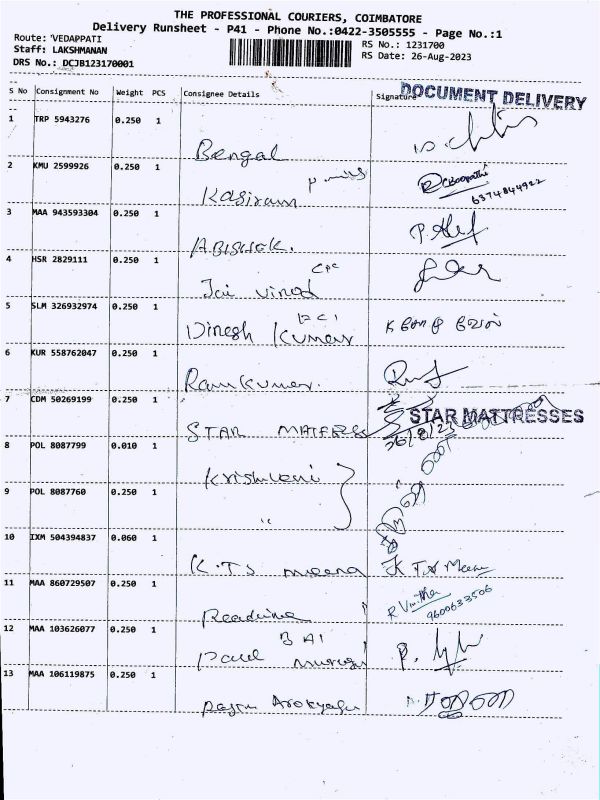 THE PROFESSIONAL COURIERS, COIMBATORE
Delivery Runsheet - P41 - Phone No.:0422-3505555 - Page No.:1
Route: 'VEDAPPATI
Staff: LAKSHMANAN
RS No.: 1231700
DRS No.: DCJB123170001
RS Date: 26-Aug-2023
S No Consignment No Weight PCS Consignee Details Signature
DOCUMENT DELIVERY
1 TRP 5943276 0.250 1
Bengal
2 KMU 2599926 0.250 1
Kasiram
6374844922
3 MAA 943593304 0.250 1
ABISHEK.
4 HSR 2829111 0.250 1
Jai vinod
5 SLM 326932974 0.250 1
Dinesh Kumar
6 KUR 558762047 0.250 1
Ramkumar.
7 CDM 50269199 0.250 1
STAR MATTRESSES
26/8/23
8 POL 8087799 0.010 1
Krishveni
9 POL 8087760 0.250 1
"
10 IXM 504394837 0.060 1
K.T.S meena
11 MAA 860729507 0.250 1
9600633506
12 MAA 103626077 0.250 1
Paul murugi
13 MAA 106119875 0.250 1